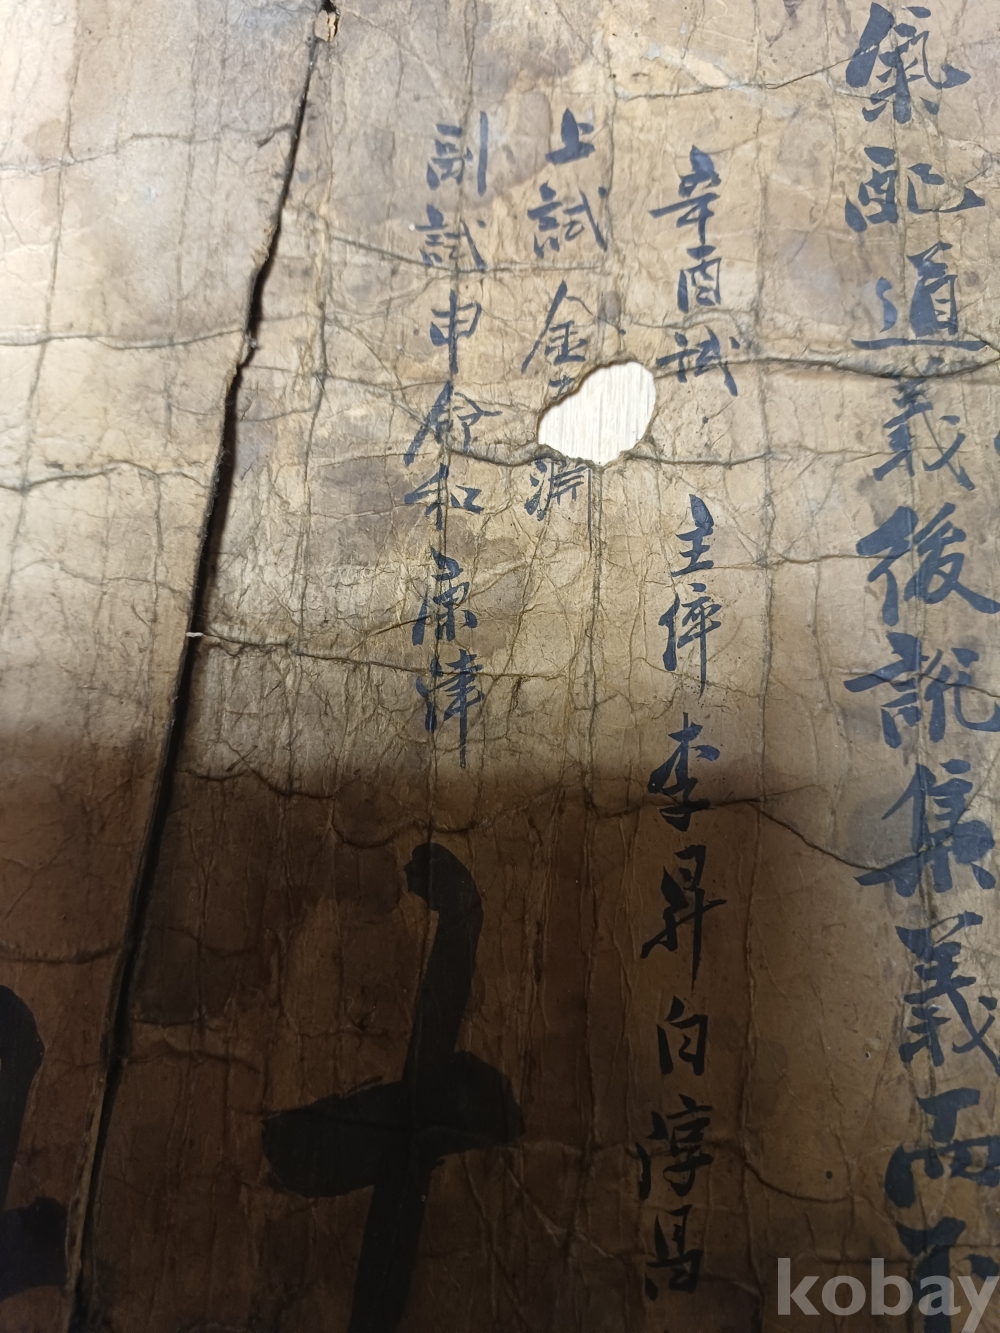 氣配道義後說集義而不
辛酉試 主倅 李昇白 淳昌
上試 金 淵
副試 申舒和 康津
十
kobay